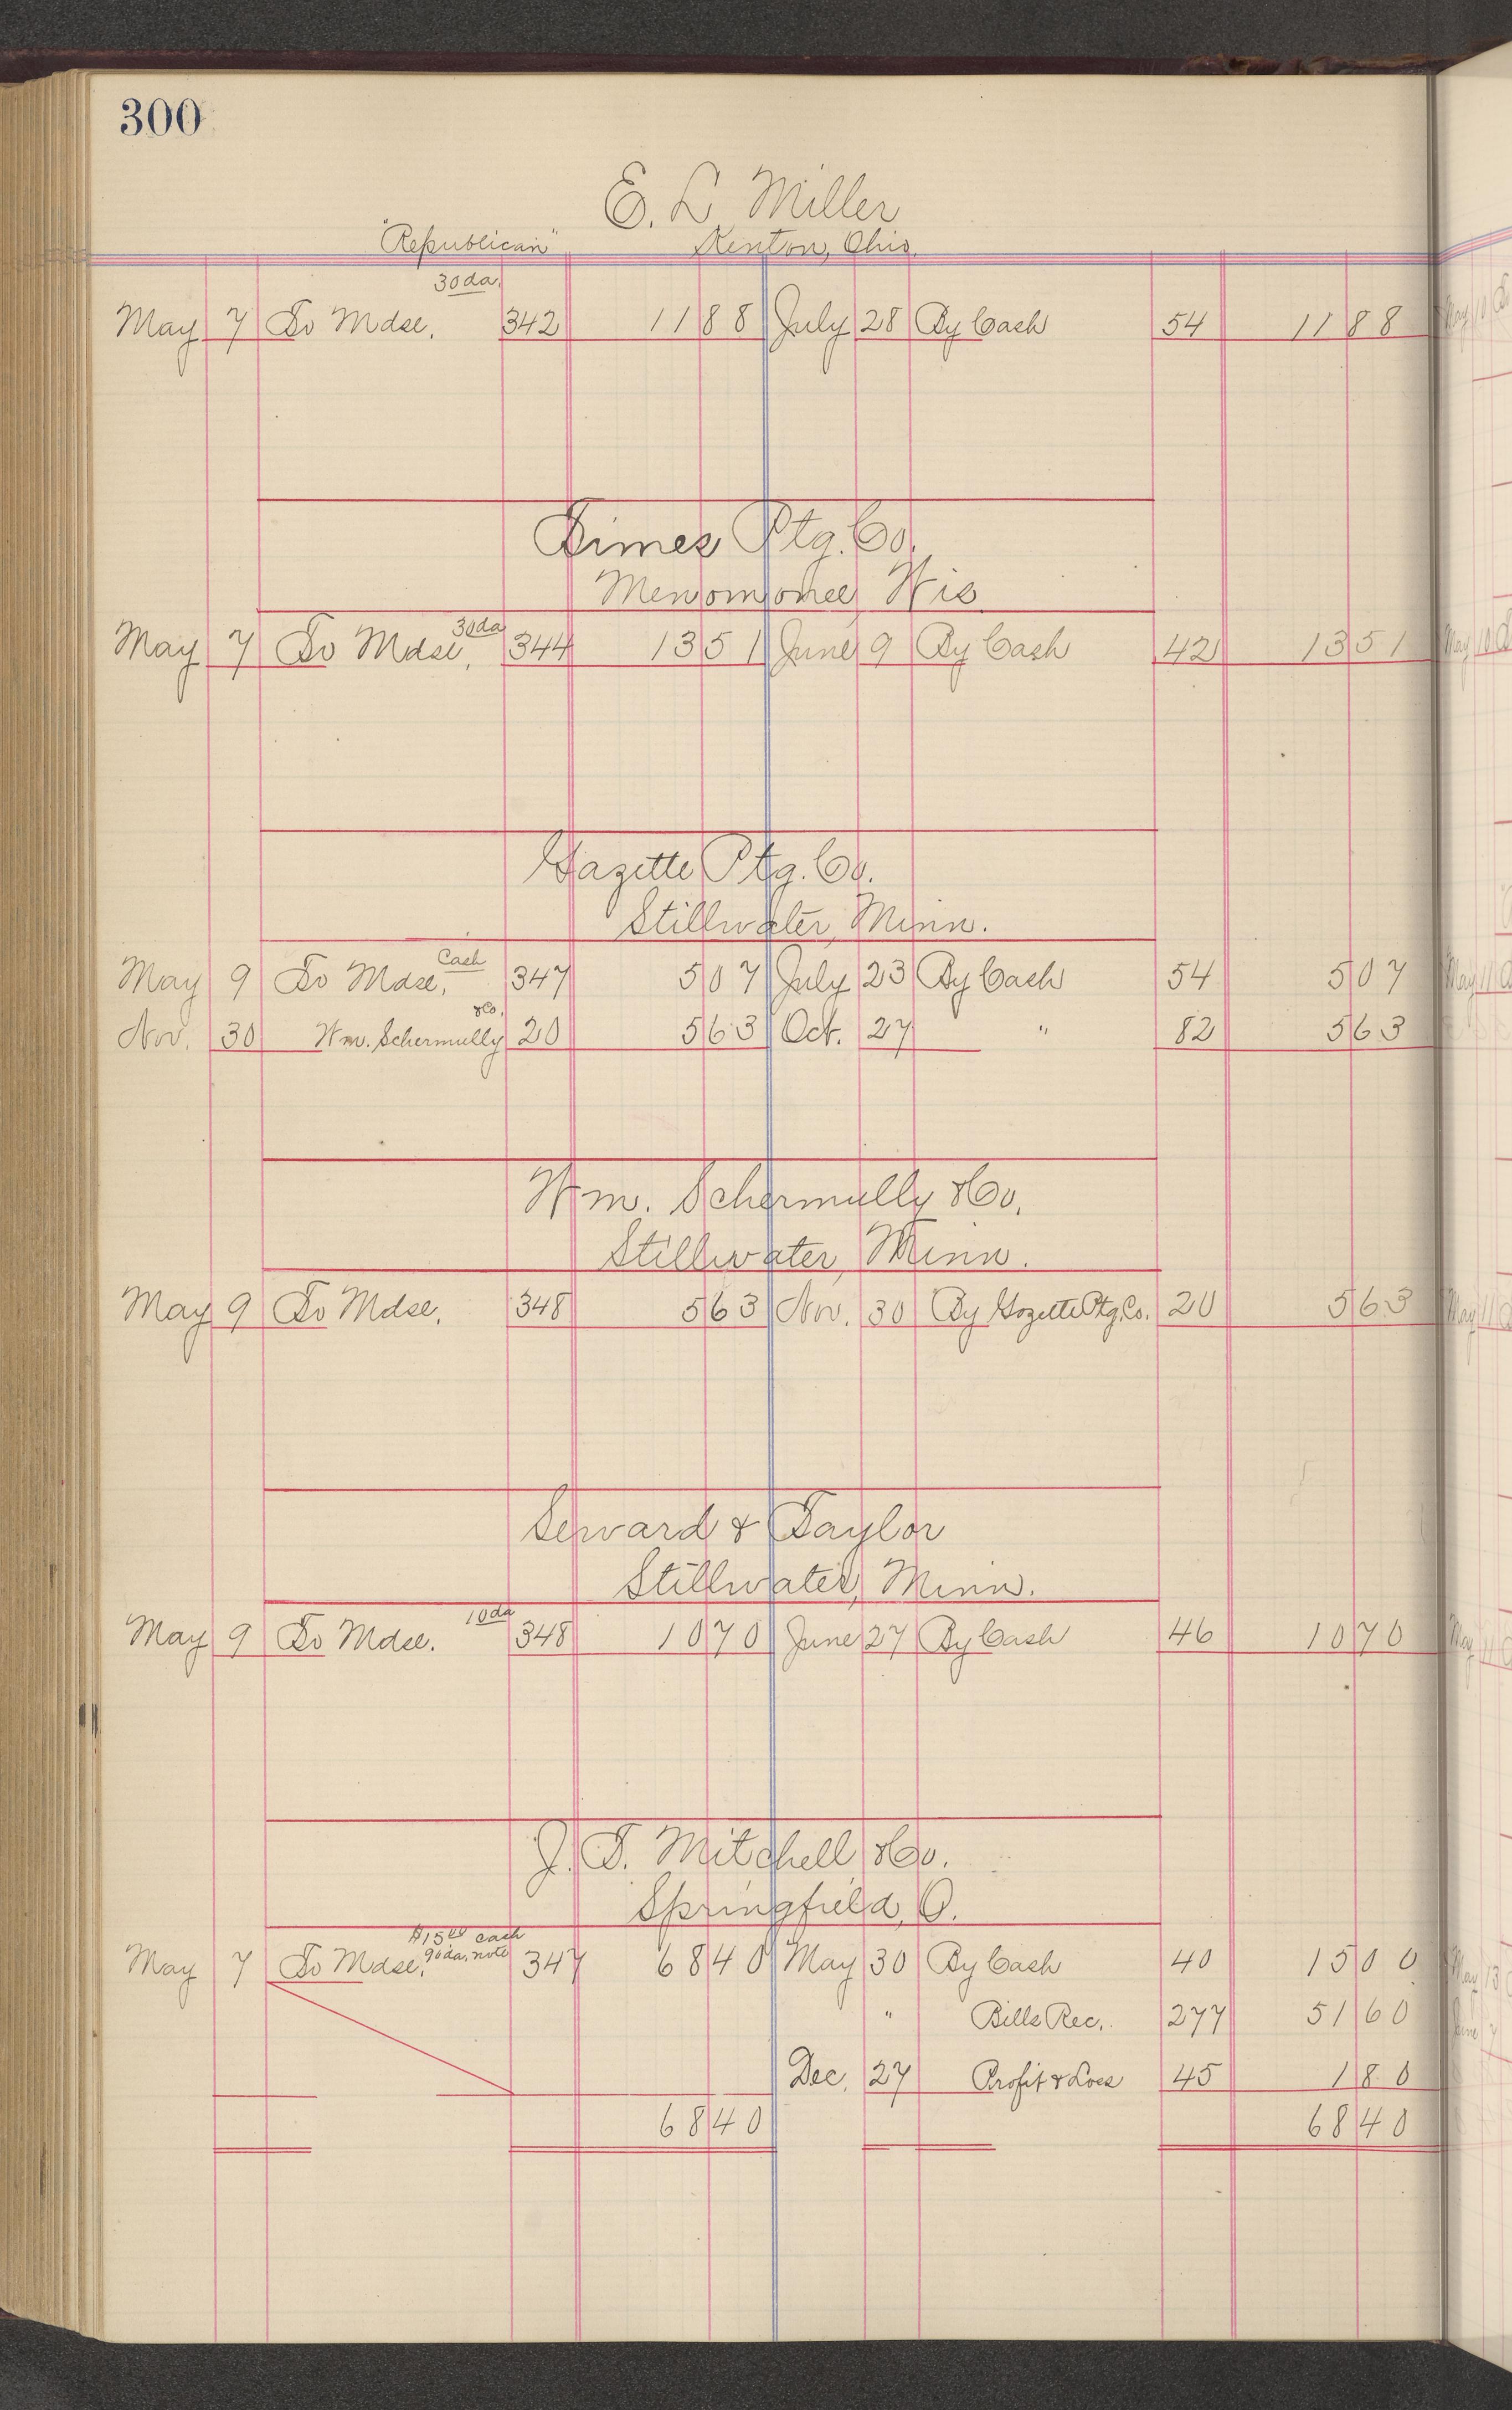 300
E. L. Miller
"Republican" Kenton, Ohio.
30 da.
May 7 To Mdse. 342 11 88 July 28 By Cash 54 11 88
Times Ptg. Co.
Menomonee Wis
30 da
May 7 To Mdse. 344 13 51 June 9 By Cash 42 13 51
Gazette Ptg. Co.
Stillwater, Minn.
Cash
May 9 To Mdse. 347 5 07 July 23 By Cash 54 5 07
&Co.
Nov. 30 Wm. Schermully 20 5 63 Oct. 27 " 82 5 63
Wm. Schermully &Co.
Stillwater, Minn.
May 9 To Mdse. 348 5 63 Nov. 30 By Gazette Ptg. Co. 20 5 63
Seward & Taylor
Stillwater, Minn.
10 da
May 9 To Mdse. 348 10 70 June 27 By Cash 46 10 70
J. T. Mitchell &Co.
Springfield, O.
$15 00 cash
90 da. note
May 7 To Mdse. 347 68 40 May 30 By Cash 40 15 00
" Bills Rec. 277 51 60
Dec. 27 Profit & Loss 45 1 80
68 40 68 40